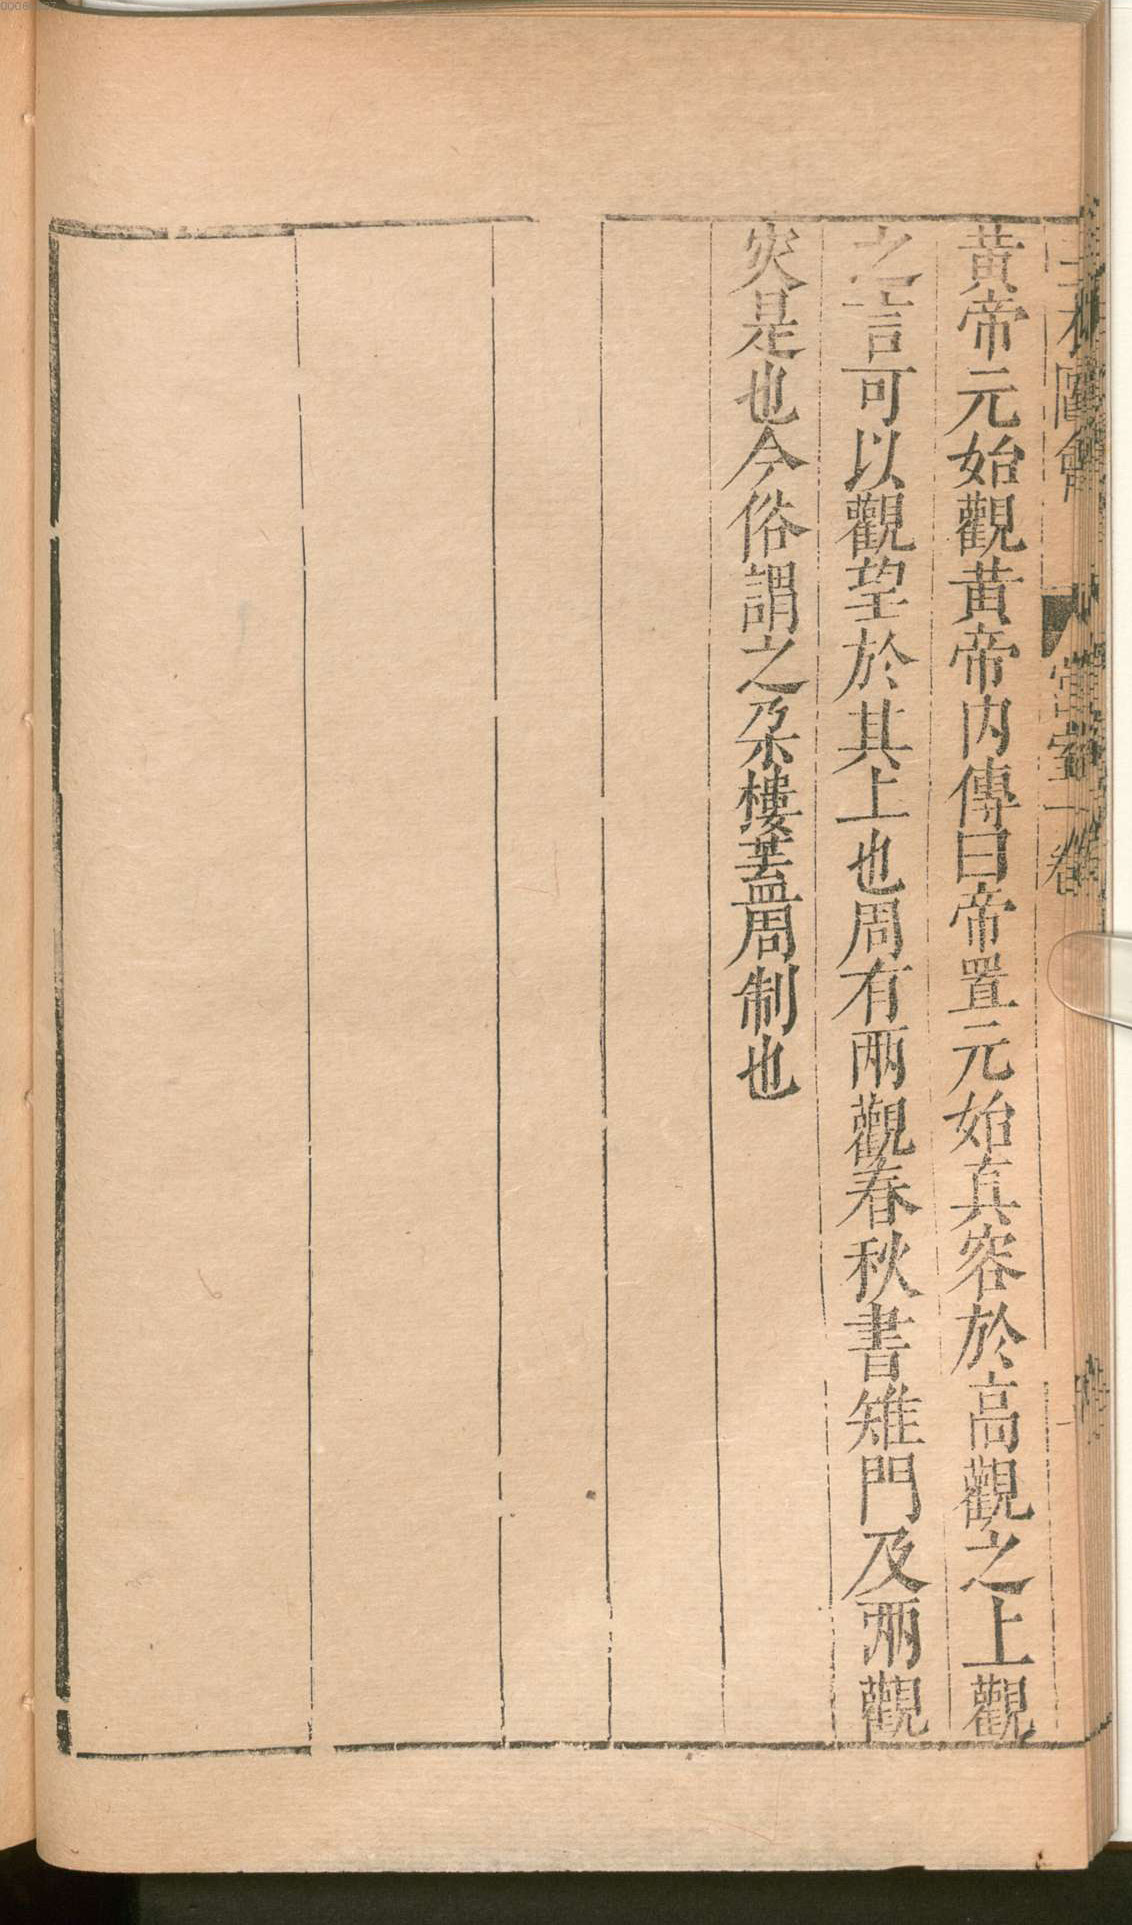 三才圖會 宮室一卷
黃帝元始觀黃帝內傳曰帝置元始真容於高觀之上觀
之言可以觀望於其上也周有兩觀春秋書雉門及兩觀
灾是也今俗謂之朶樓葢周制也